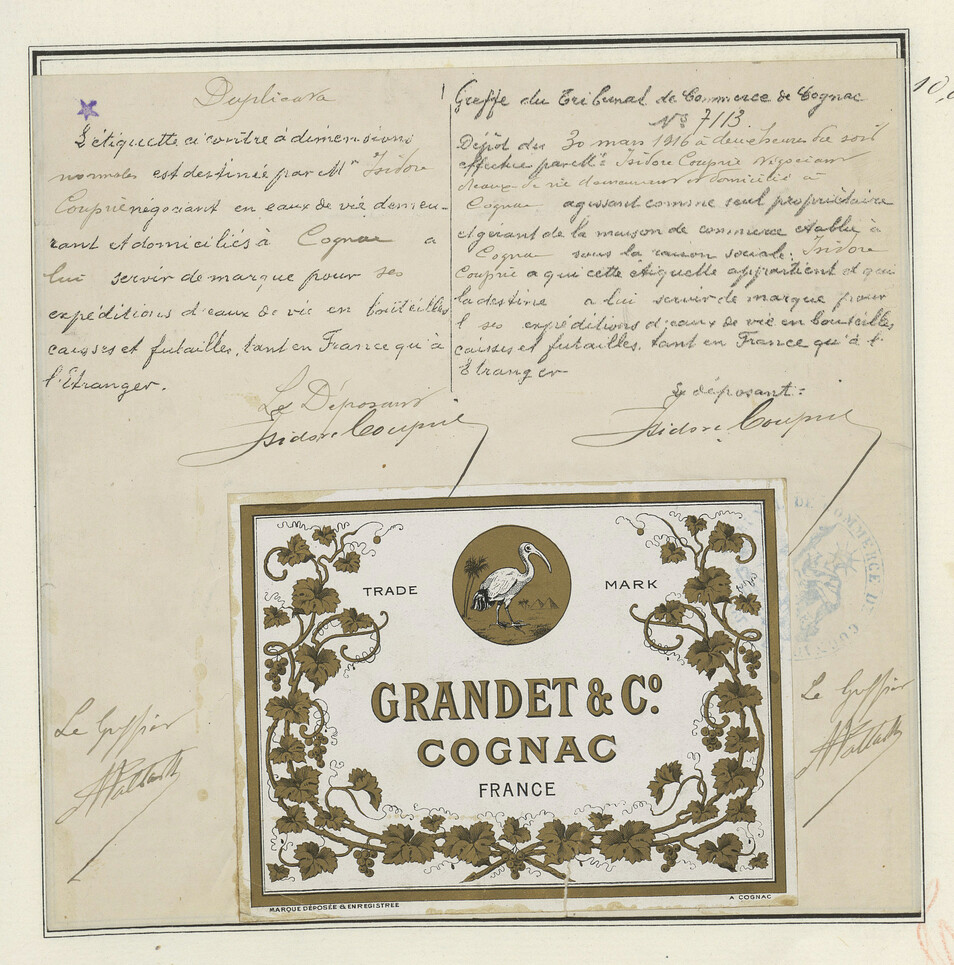 Duplicata
L'étiquette ci contre à dimensions
normales est destinée par Mr Isidore
Couprie négociant en eaux de vie demeu-
rant et domiciliés à Cognac a
lui servir de marque pour ses
expéditions d'eaux de vie en bouteilles
caisses et futailles, tant en France qu'à
l'Etranger.
Le Déposant
Isidore Couprie
Greffe du Tribunal de Commerce de Cognac
N° 7113
Dépôt du 30 mars 1916 à deux heures du soir
effectué par Mr Isidore Couprie négociant
d'eaux-de vie demeurant et domicilié à
Cognac agissant comme seul propriétaire
et gérant de la maison de commerce établie à
Cognac sous la raison sociale: Isidore
Couprie a qui cette étiquette appartient et qui
la destine a lui servir de marque pour
ses expéditions d'eaux de vie en bouteilles
caisses et futailles. tant en France qu'à l'
Etranger
Le déposant:
Isidore Couprie
10,
TRADE MARK
GRANDET & Co.
COGNAC
FRANCE
MARQUE DÉPOSÉE & ENREGISTRÉE
A COGNAC
DE COMMERCE DE
Le Greffier
Le Greffier